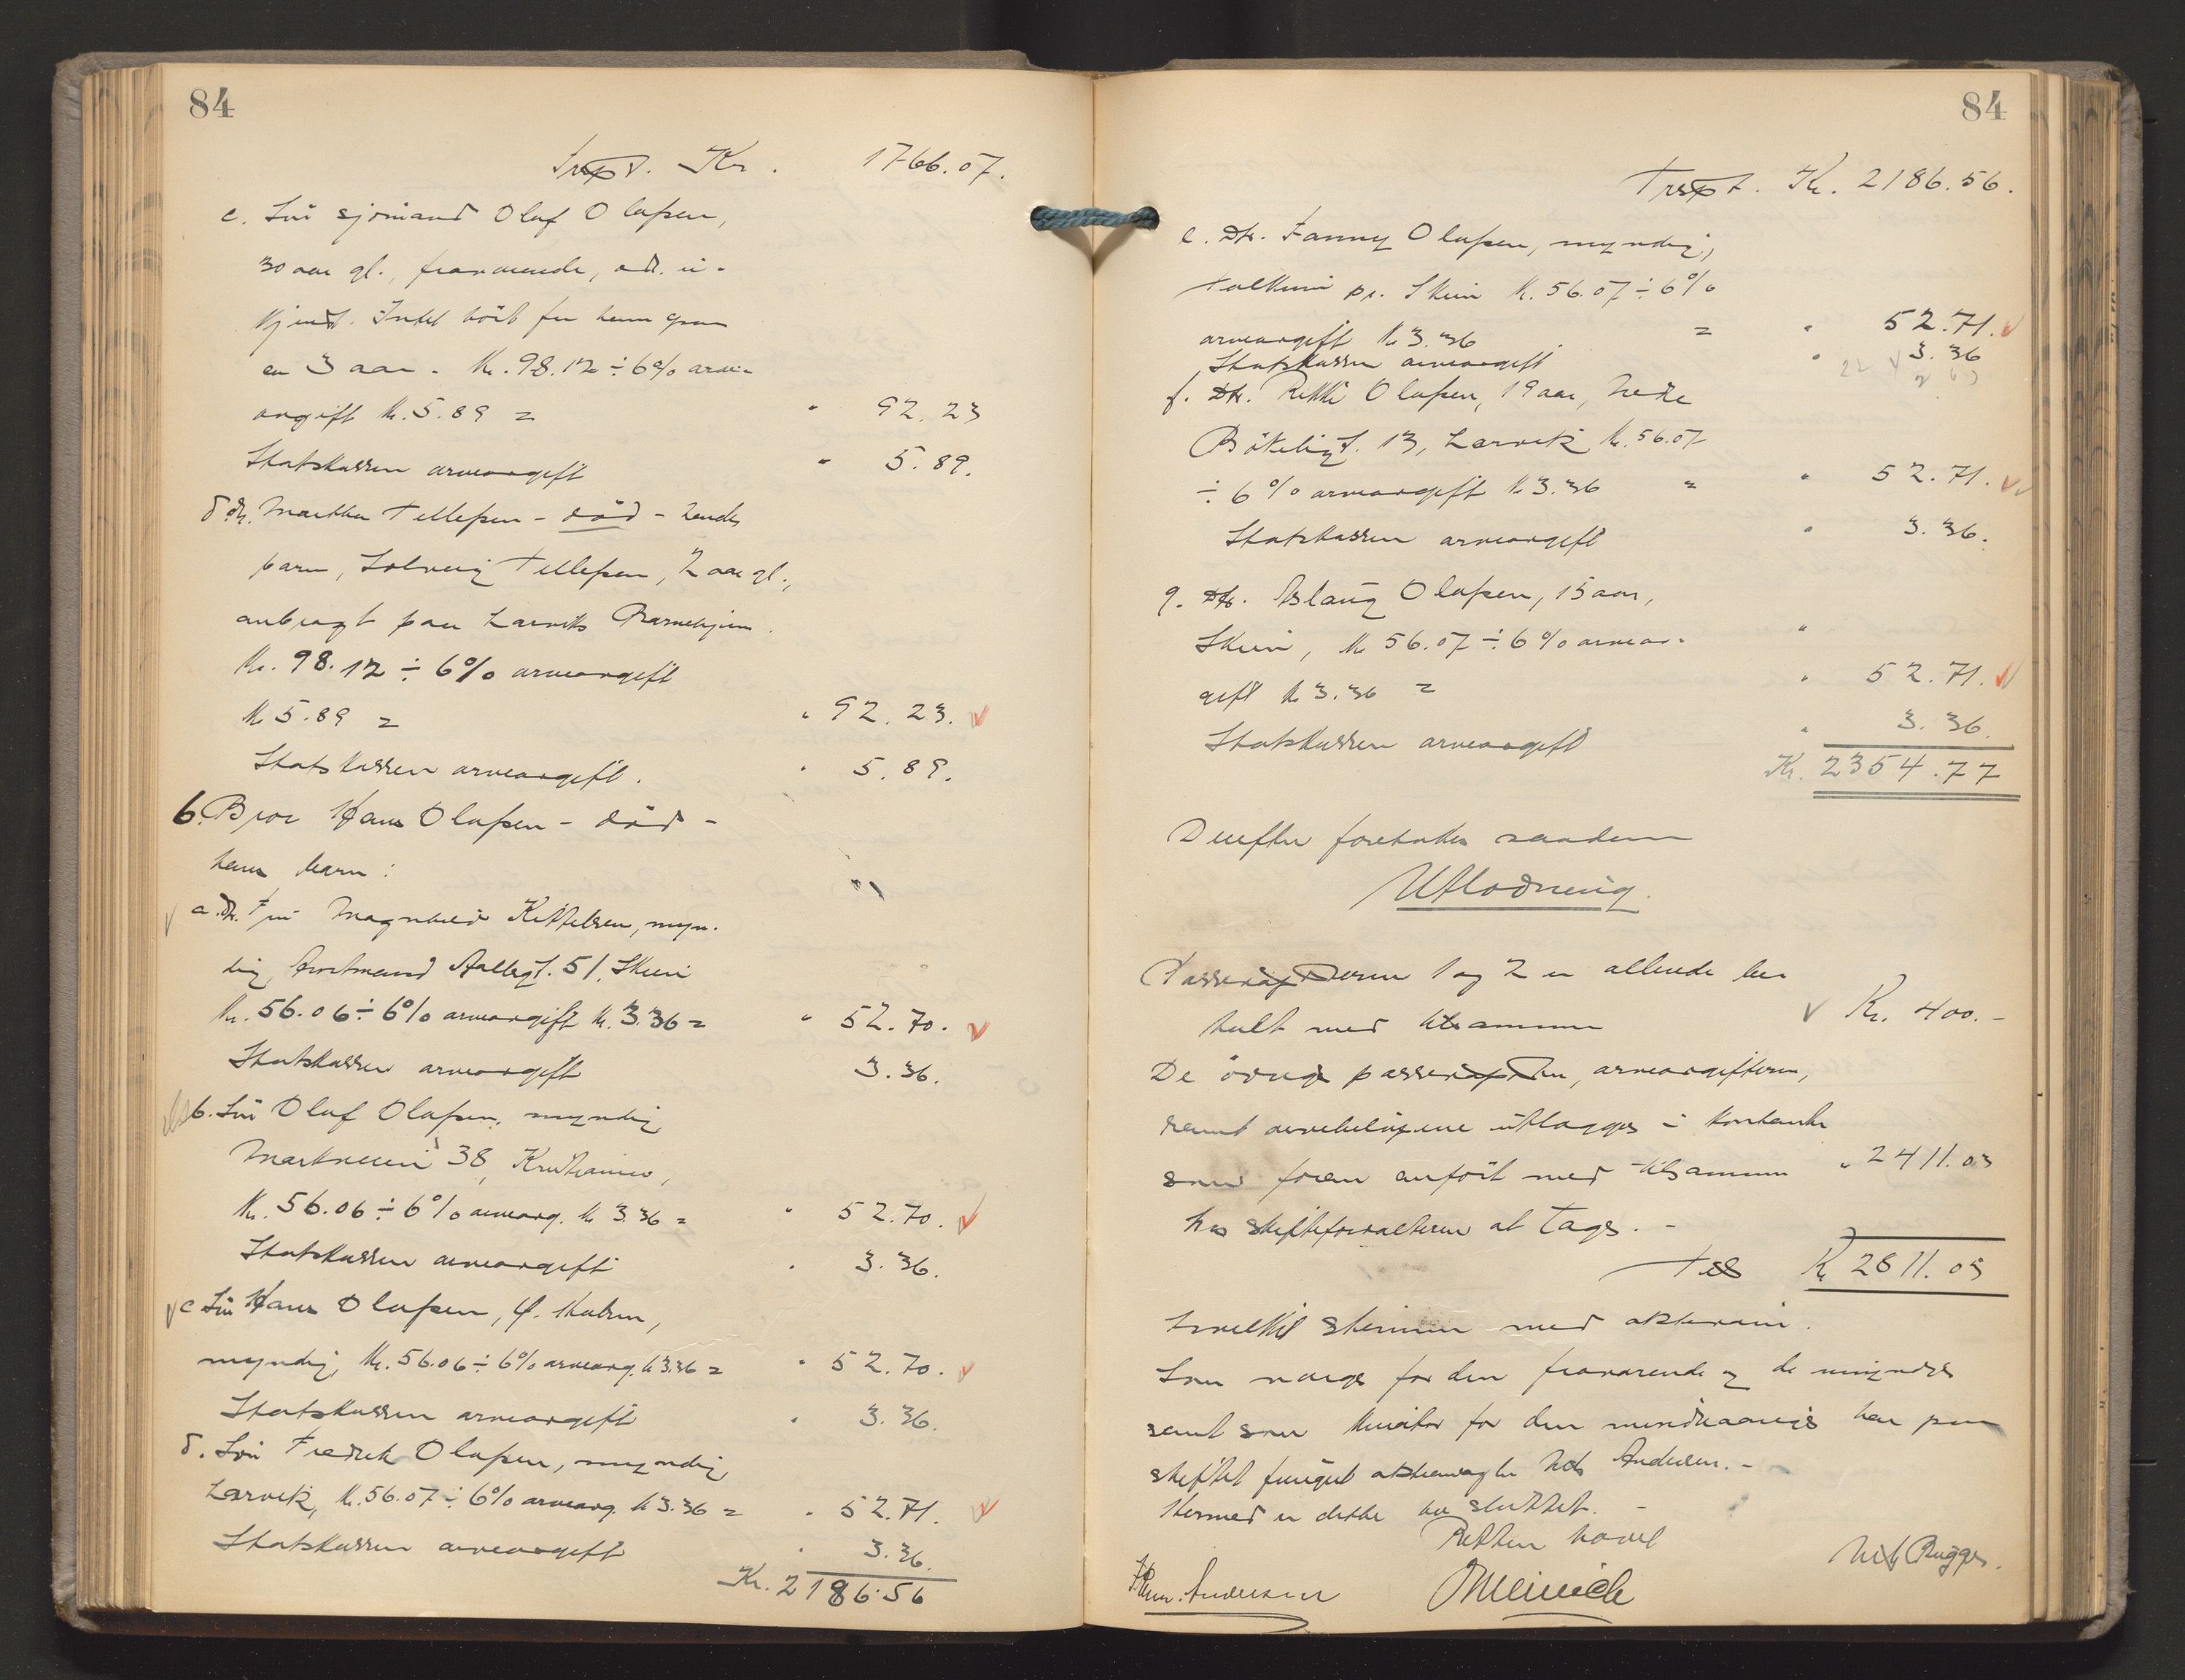 84
Trspt. Kr. 1766.07.
c. Søn sjømand Olaf Olafsen,
30 aar gl., fraværende, adr. u-
kjendt. Intet hørt fra ham paa
ca 3 aar. Kr. 98.12 ÷ 6% arve-
avgift Kr. 5.89 = " 92.23
Statskassen arveavgift " 5.89.
d. Dtr. Martha Tellefsen - død - hendes
barn, Solveig Tellefsen, 2 aar gl.,
anbragt paa Larviks Barnehjem.
Kr. 98.12 ÷ 6% arveavgift
Kr 5.89 = " 92.23.
Statskassen arveavgift. " 5.89.
6. Bror Hans Olafsen - død -
hans barn:
a. Dtr. Fru Magnhild Kittelsen, myn-
dig, Amtmand Aallsgt. 51, Skien
Kr. 56.06 ÷ 6% arveavgift Kr. 3.36 = " 52.70.
Statskassen arveavgift 3.36.
b. Søn Olaf Olafsen, myndig,
Markveien 38, Kristiania,
Kr. 56.06 ÷ 6% arveavg. Kr 3.36 = " 52.70.
Statskassen arveavgift " 3.36.
c Søn Hans Olafsen,
myndig, Kr. 56.06 ÷ 6% arveavg. Kr 3.36 = " 52.70.
Statskassen arveavgift " 3.36.
d. Søn Fredrik Olafsen, myndig,
Larvik, Kr. 56.07 ÷ 6% arveavg. Kr 3.36 = " 52.71.
Statskassen arveavgift " 3.36.
Kr. 2186.56
84
Trspt. Kr. 2186.56.
e. Dtr. Fanny Olafsen, myndig,
pr. Skien Kr. 56.07 ÷ 6%
arveavgift Kr 3.36 = " 52.71.
Statskassen arveavgift " 3.36
f. Dtr. Rikke Olafsen, 19 aar, Nedre
Bøkeligt. 13, Larvik Kr. 56.07
÷ 6% arveavgift Kr 3.36 = " 52.71.
Statskassen arveavgift " 3.36.
g. Dtr. Aslaug Olafsen, 15 aar,
Skien, Kr 56.07 ÷ 6% arveav-
gift Kr 3.36 = " 52.71.
Statskassen arveavgift " 3.36.
Kr. 2354.77
Derefter foretokes saadan
Utlodning.
Passivposterne 1 og 2 er allerede be-
talt med tilsammen Kr. 400.-
De øvrige passivposter, arveavgifterne,
samt arvebeløpene utlægges i kontanter
som foran anført med tilsammen " 2411.03
hos skifteforvalteren at tages. -
Tils Kr 2811.03
hvilket stemmer med aktivaene.
Som værge for den fraværende og de umyndige
samt som kurator for den mindreaarige har paa
skiftet fungert Andersen. -
Hermed er dette bo sluttet. -
Retten hævet
Andersen
Bugge.